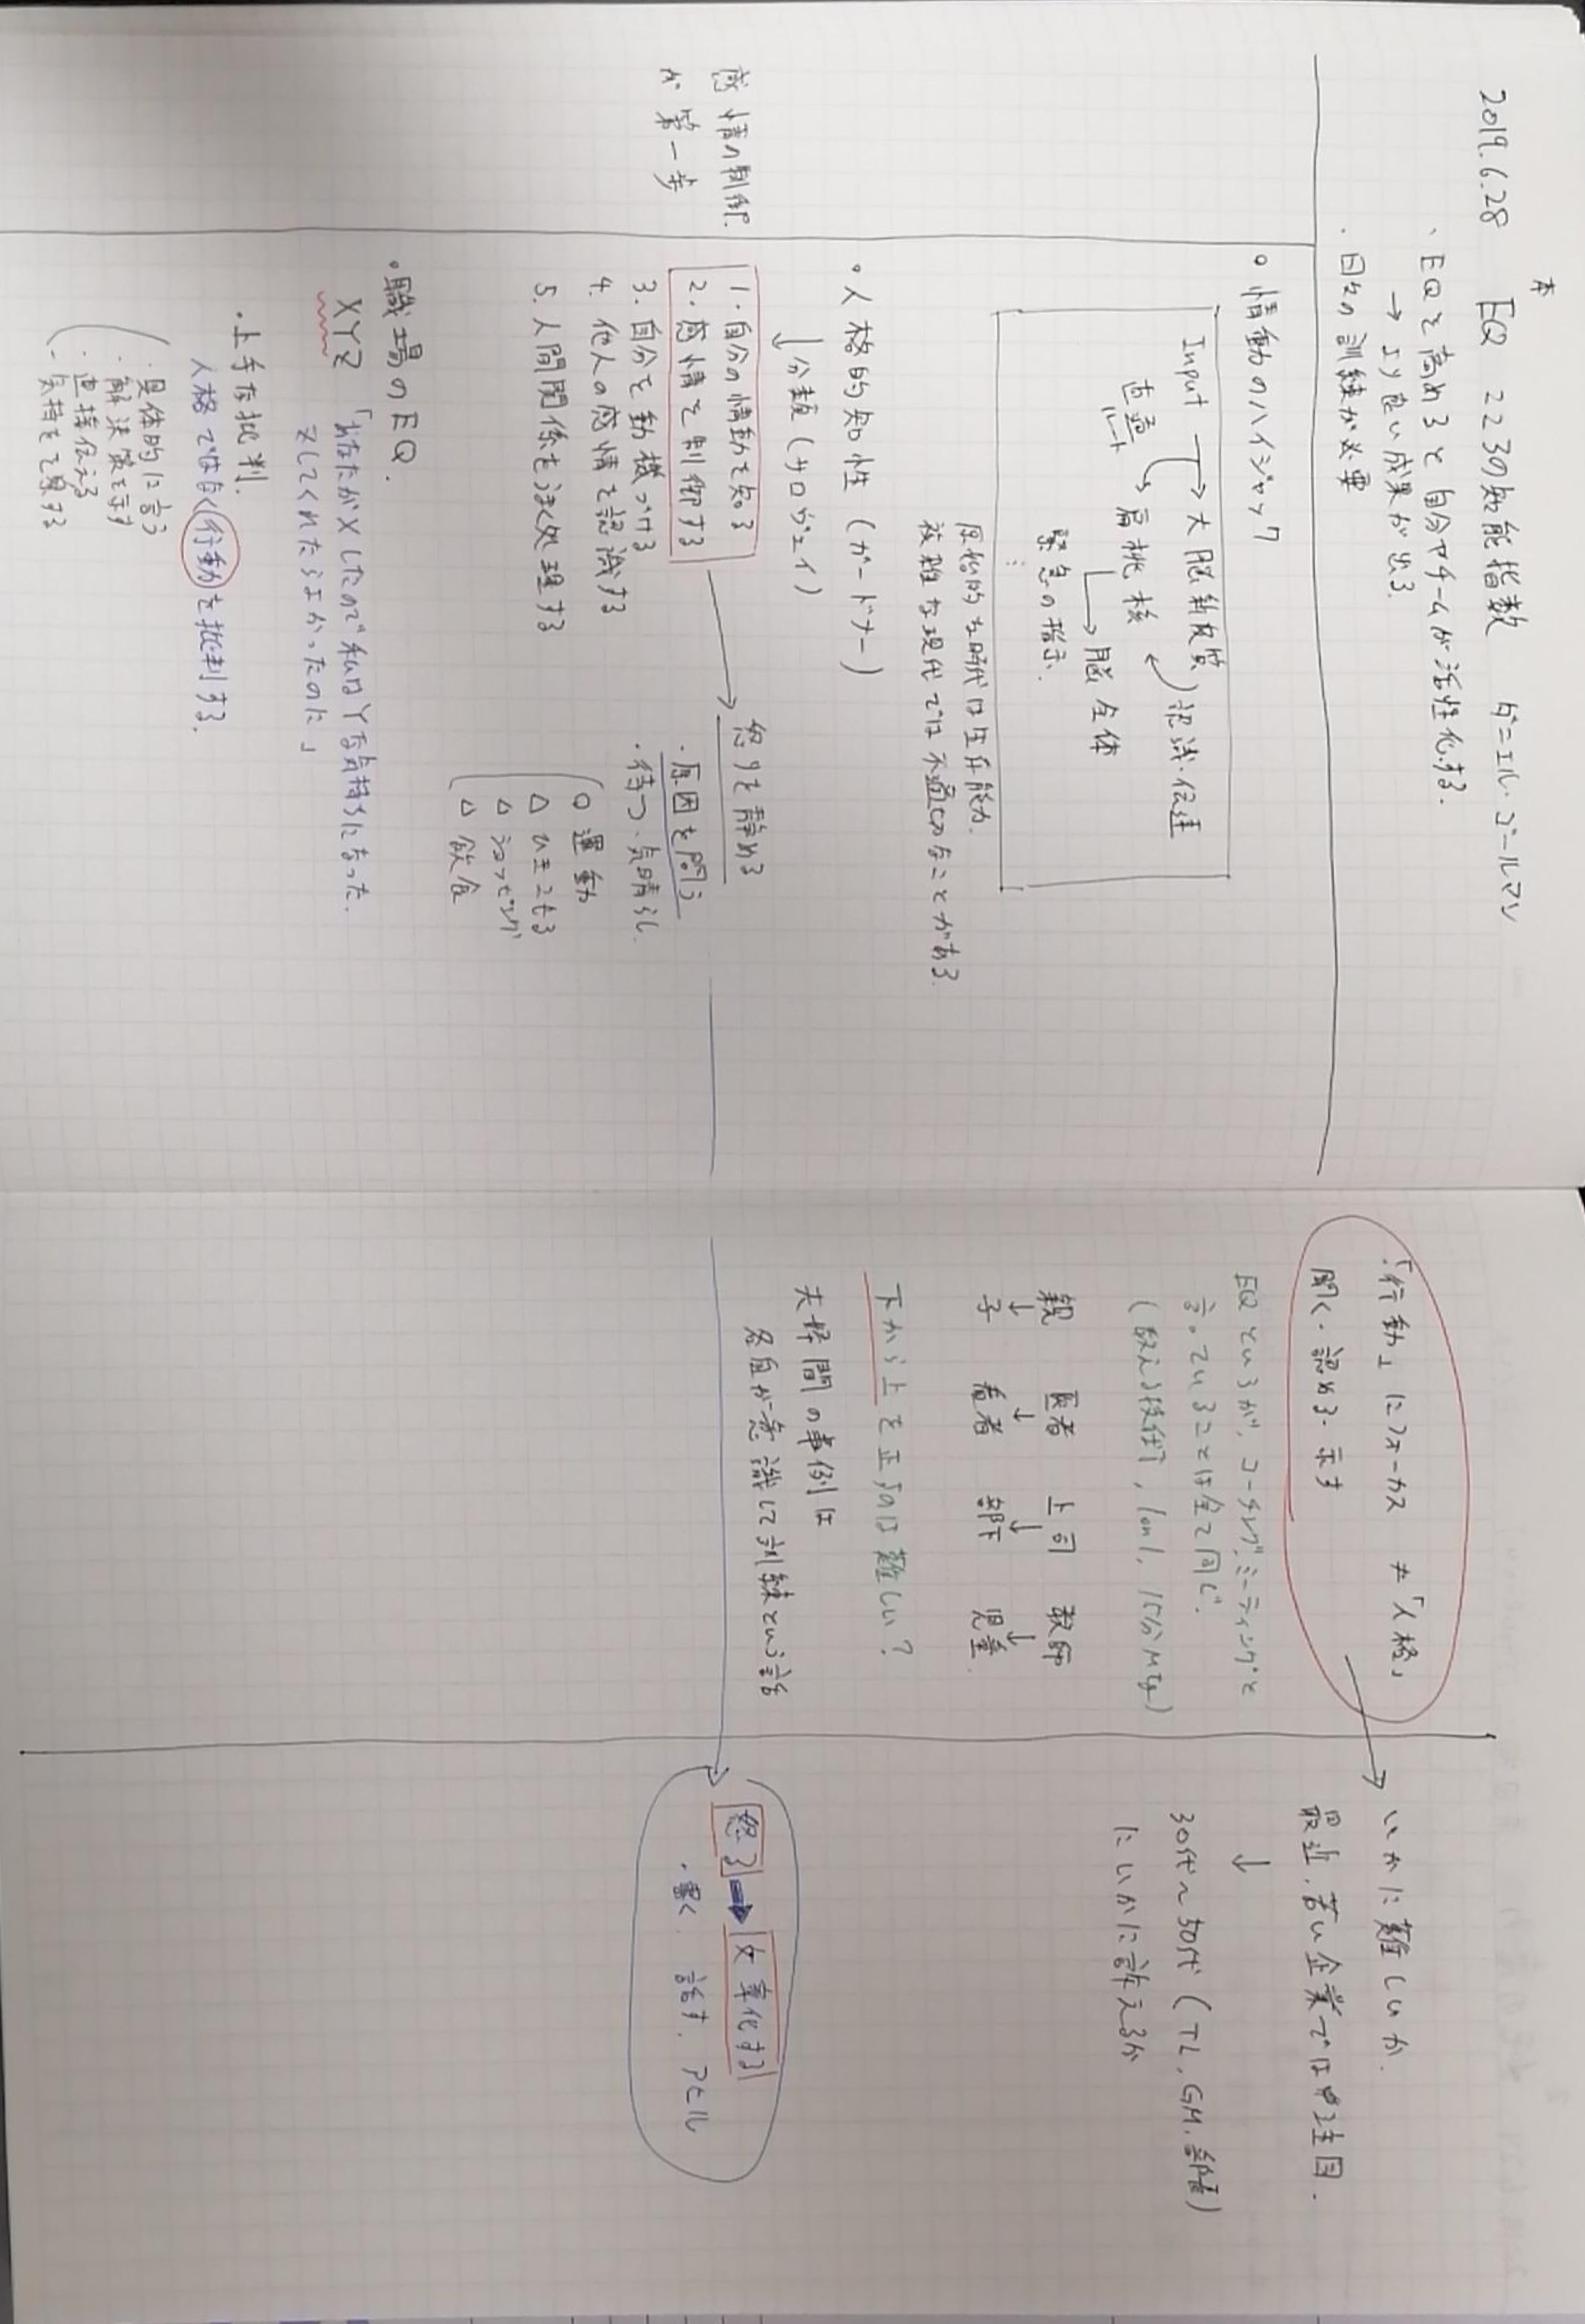 本
2019.6.28 EQ こころの知能指数 ダニエル・ゴールマン
・EQを高めると自分やチームが活性化する.
→ より良い成果が出る.
・日々の訓練が必要
感情の制御.
が第一歩
○ 情動のハイジャック
Input → 大脳新皮質
認識・伝達
直通
ルート
扁桃核
脳全体
緊急の指示.
⋮
原始的な時代は生存能力.
複雑な現代では不適切なことがある.
○人格的知性 (ガードナー)
↓分類 (サロヴェイ)
1. 自分の情動を知る
2. 感情を制御する
3. 自分を動機づける
4. 他人の感情を認識する
5. 人間関係をうまく処理する
怒りを静める
・原因を問う
・待つ・気晴らし
○ 運動
△ ひきこもる
△ ショッピング
△ 飲食
○職場のEQ.
XYZ 「あなたがXしたので私はYな気持ちになった.
Zしてくれたらよかったのに」
・上手な批判.
人格ではなく行動を批判する.
・具体的に言う
・解決策を示す
・直接伝える
・気持を
「行動」にフォーカス ≠「人格」
聞く・認める・示す
EQというが, コーチング, ミーティングと
言っていることは全て同じ.
(教える技術, 1on1, 15分Mtg)
親 医者 上司 教師
↓ ↓ ↓ ↓
子 患者 部下 児童
下から上を正すのは難しい?
夫婦間の事例は
各自が意識して訓練という話
いかに難しいか.
最近, 若い企業では注目.
↓
30代〜50代 (TL, GM, 部長)
にいかに訴えるか
怒る → 文章化する
・書く, 話す, アヒル